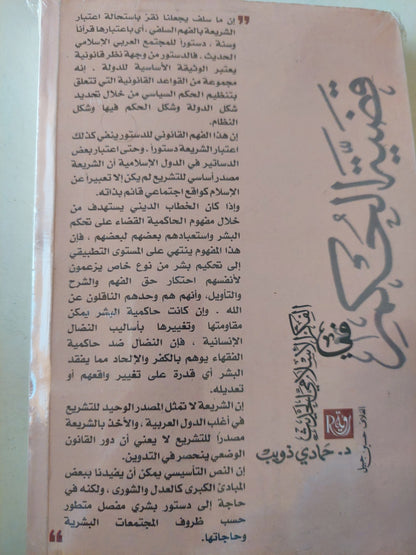 إن ما سلف يجعلنا نقرّ باستحالة اعتبار
الشريعة بالفهم السلفي، أي باعتبارها قرآنا
وسنة ، دستوراً للمجتمع العربي الإسلامي
الحديث . فالدستور من وجهة نظر قانونية
يعتبر الوثيقة الأساسية للدولة . إنه
مجموعة من القواعد القانونية التي تتعلق
بتنظيم الحكم السياسي من خلال تحديد
شكل الدولة وشكل الحكم فيها وشكل
النظام.
إن هذا الفهم القانوني للدستور ينفي كذلك
اعتبار الشريعة دستوراً . وحتى اعتبار بعض
الدساتير في الدول الإسلامية أن الشريعة
مصدر أساسي للتشريع لم يكن إلا تعبيراً عن
الإسلام كواقع اجتماعي قائم بذاته.
وإذا كان الخطاب الديني يستهدف من
خلال مفهوم الحاكمية القضاء على تحكم
البشر واستعبادهم بعضهم لبعضهم ، فإن
هذا المفهوم ينتهي على المستوى التطبيقي
إلى تحكيم بشر من نوع خاص يزعمون
لأنفسهم احتكار حق الفهم والشرح
والتأويل، وأنهم هم وحدهم الناقلون عن
الله . وإن كانت حاكمية البشر يمكن
مقاومتها وتغييرها بأساليب النضال
الإنسانية ، فإن النضال ضد حاكمية
الفقهاء يوهم بالكفر والإلحاد مما يفقد
البشر أي قدرة على تغيير واقعهم أو
تعديله.
إن الشريعة لا تمثل المصدر الوحيد للتشريع
في أغلب الدول العربية ، والأخذ بالشريعة
مصدراً للتشريع لا يعني أن دور القانون
الوضعي ينحصر في التدوين.
إن النص التأسيسي يمكن أن يفيدنا ببعض
المبادئ الكبرى كالعدل والشورى ، ولكنه في
حاجة إلى دستور بشري مفصل متطور
حسب ظروف المجتمعات البشرية
وحاجاتها.
قضية الحكم
في
الفكر الإسلامي الحديث
د. حمادي ذويب